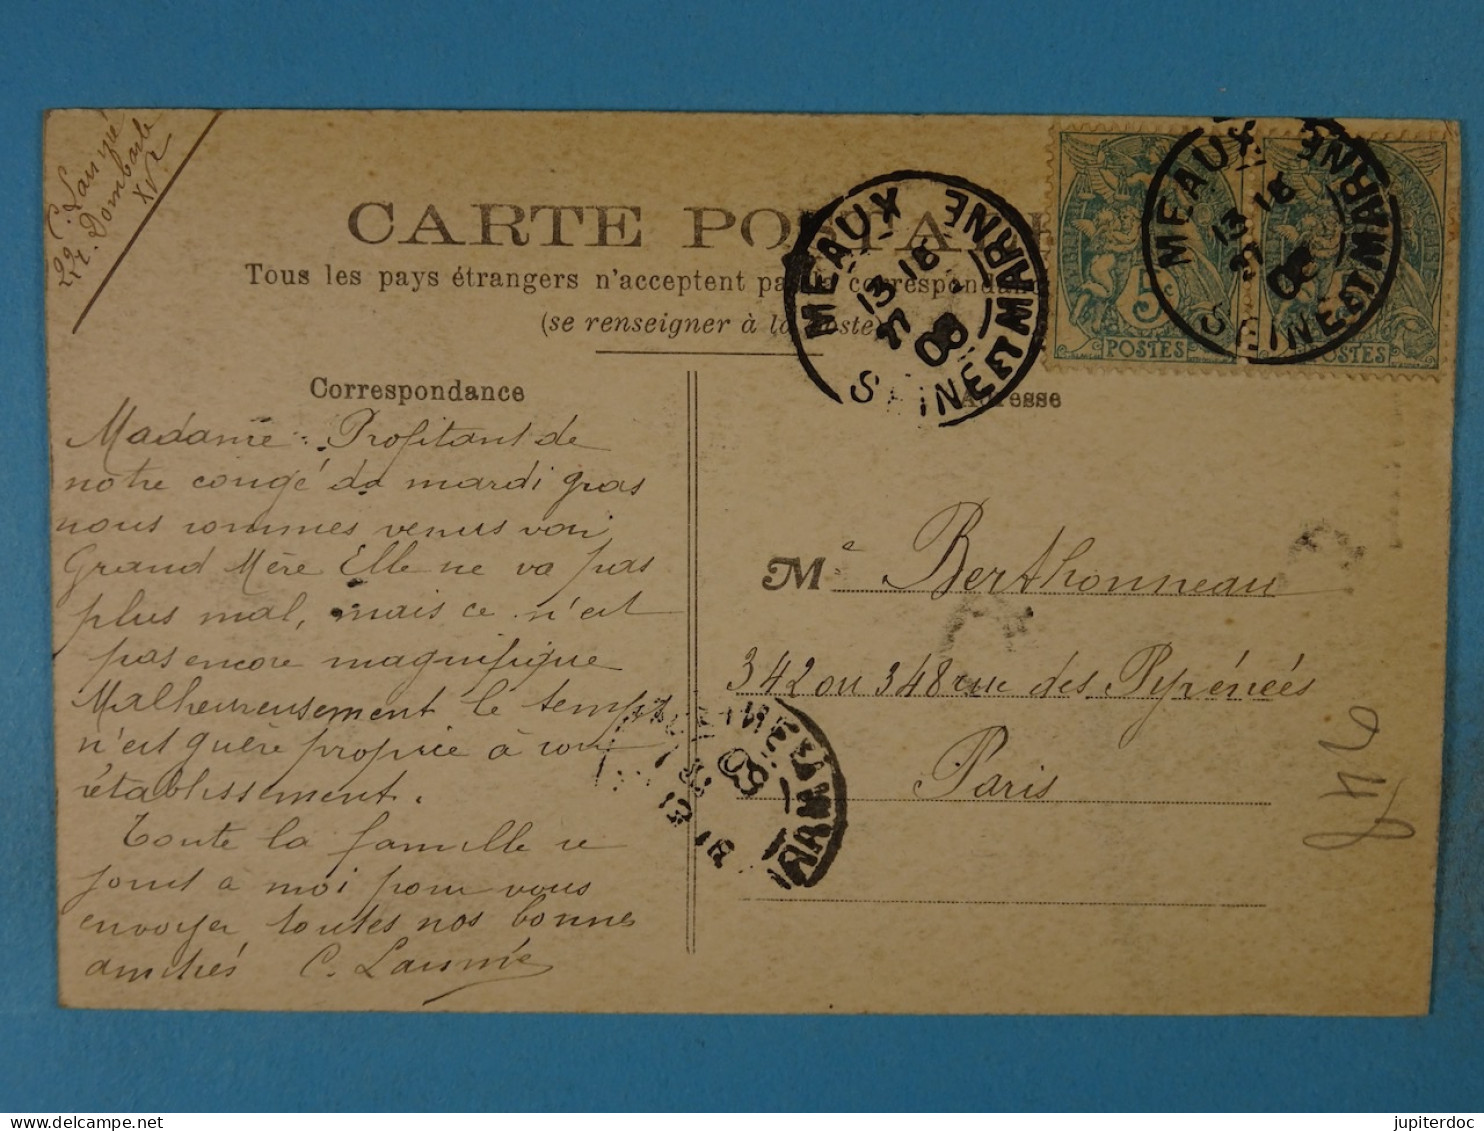 C. Laumé
22 r. Dombasle
XVe
CARTE POSTALE
Tous les pays étrangers n'acceptent pas la correspondance
(se renseigner à la Poste)
Correspondance
Adresse
MEAUX
13 18
27
08
SEINE ET MARNE
MEAUX
13 18
27
08
SEINE ET MARNE
5
POSTES
POSTES
Madame : Profitant de
notre congé de mardi gras
nous sommes venus voir
Grand Mère Elle ne va pas
plus mal, mais ce n'est
pas encore magnifique
Malheureusement le temps
n'est guère propice à son
rétablissement.
Toute la famille se
joint a moi pour vous
envoyer toutes nos bonnes
amitiés C. Laumé
Me Berthonneau
342 ou 348 rue des Pyrénées
Paris
08
MARNE
jupiterdoc